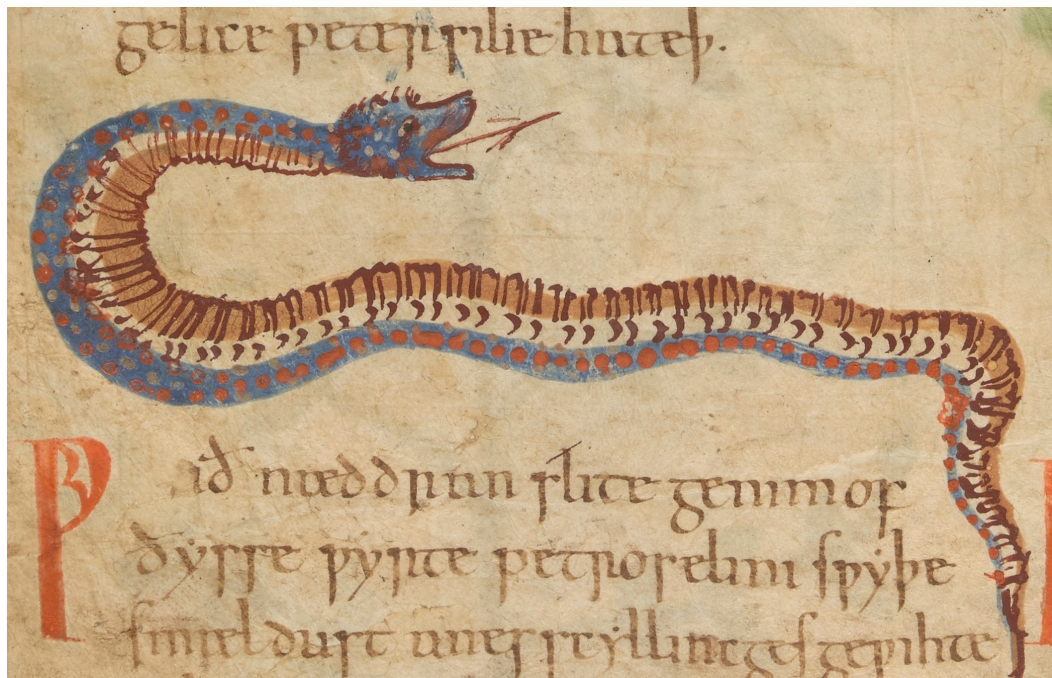 gelice petersilie hateþ.
Ƿið næddran slite genim of
ðysse ƿyrte petroselini sƿyþe
smæl dust anes scyllinges geƿihte